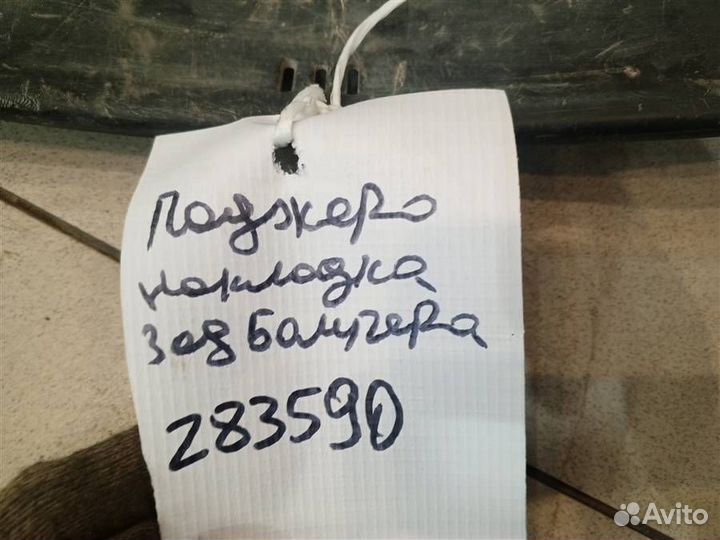 Паджеро
накладка
зад бампера
283590
Avito